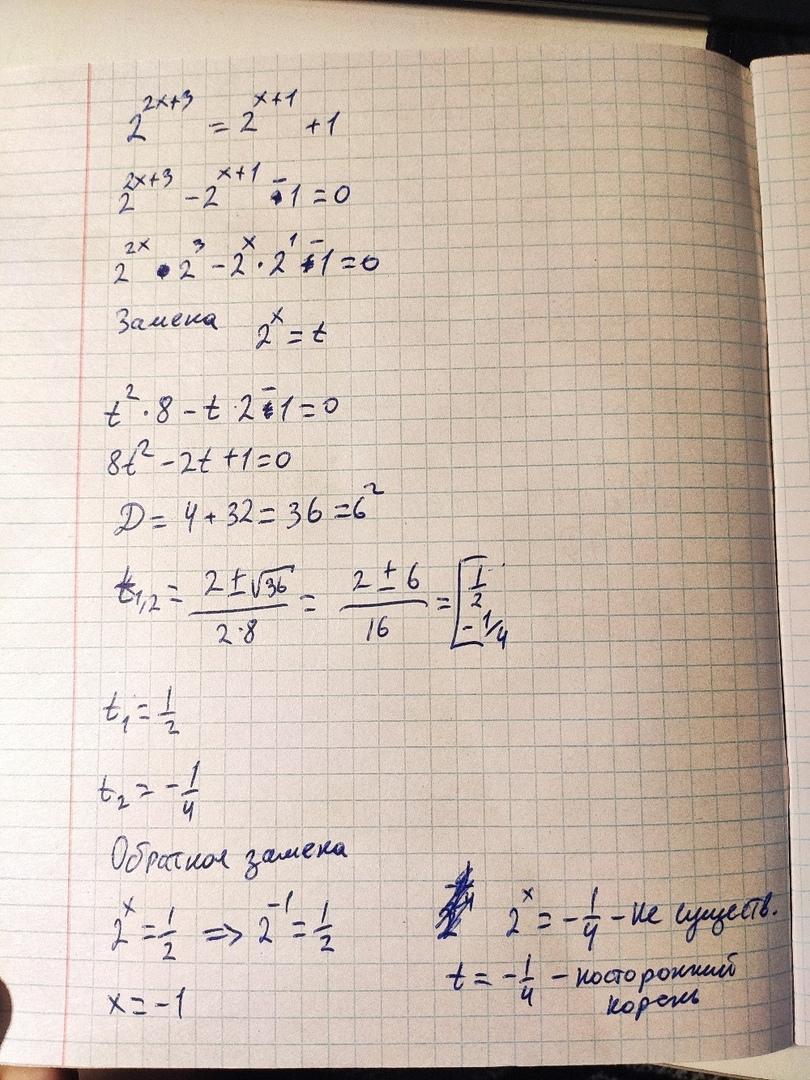 2^{2x+3} = 2^{x+1} + 1
2^{2x+3} - 2^{x+1} - 1 = 0
2^{2x} • 2^3 - 2^x · 2^1 - 1 = 0
Замена 2^x = t
t^2 · 8 - t · 2 - 1 = 0
8t^2 - 2t + 1 = 0
D = 4 + 32 = 36 = 6^2
t_{1,2} = \frac{2 ± √36}{2·8} = \frac{2 ± 6}{16} = [ \frac{1}{2} ; -1/4
t_1 = \frac{1}{2}
t_2 = -\frac{1}{4}
Обратная замена
2^x = \frac{1}{2} => 2^{-1} = \frac{1}{2}
x = -1
2^x = -\frac{1}{4} - не существ.
t = -\frac{1}{4} - посторонний
корень